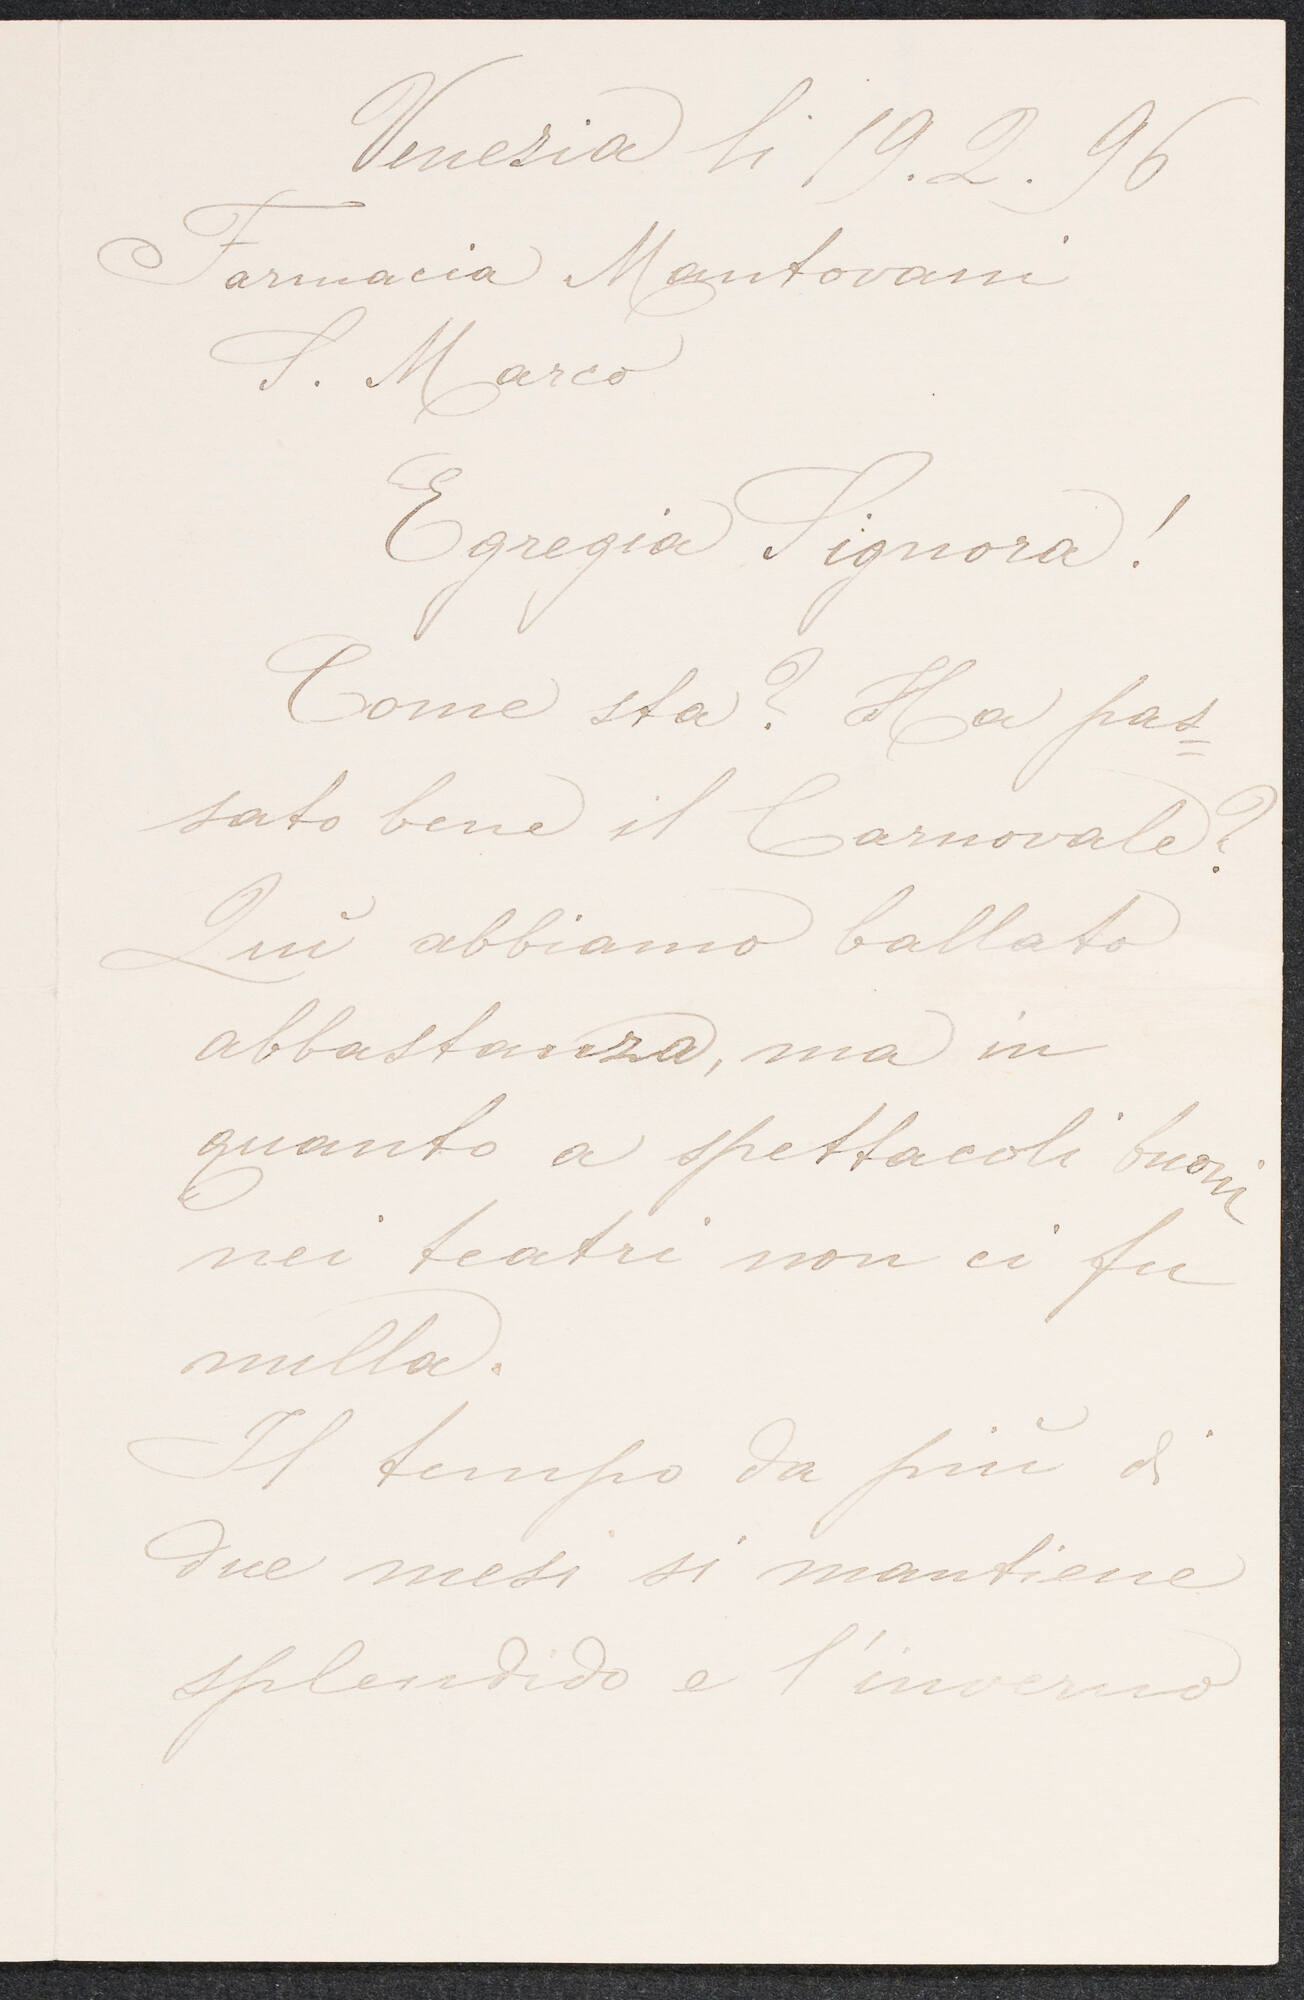 Venezia li 19. 2. 96
Farmacia Mantovani
S. Marco
Egregia Signora!
Come sta? Ha pas=
sato bene il Carnovale?
Quì abbiamo ballato
abbastanza, ma in
quanto a spettacoli buoni
nei teatri non ci fu
nulla.
Il tempo da più di
due mesi si mantiene
splendido e l'inverno